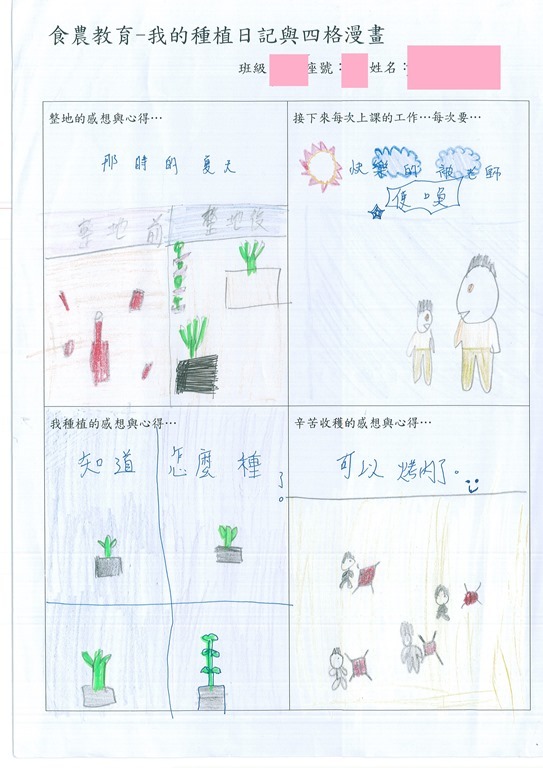 食農教育-我的種植日記與四格漫畫
班級 座號： 姓名：
整地的感想與心得…
那時的夏天
整地前 整地後
接下來每次上課的工作…每次要…
快樂的被老師
使喚
我種植的感想與心得…
知道怎麼種了。
辛苦收穫的感想與心得…
可以烤肉了。